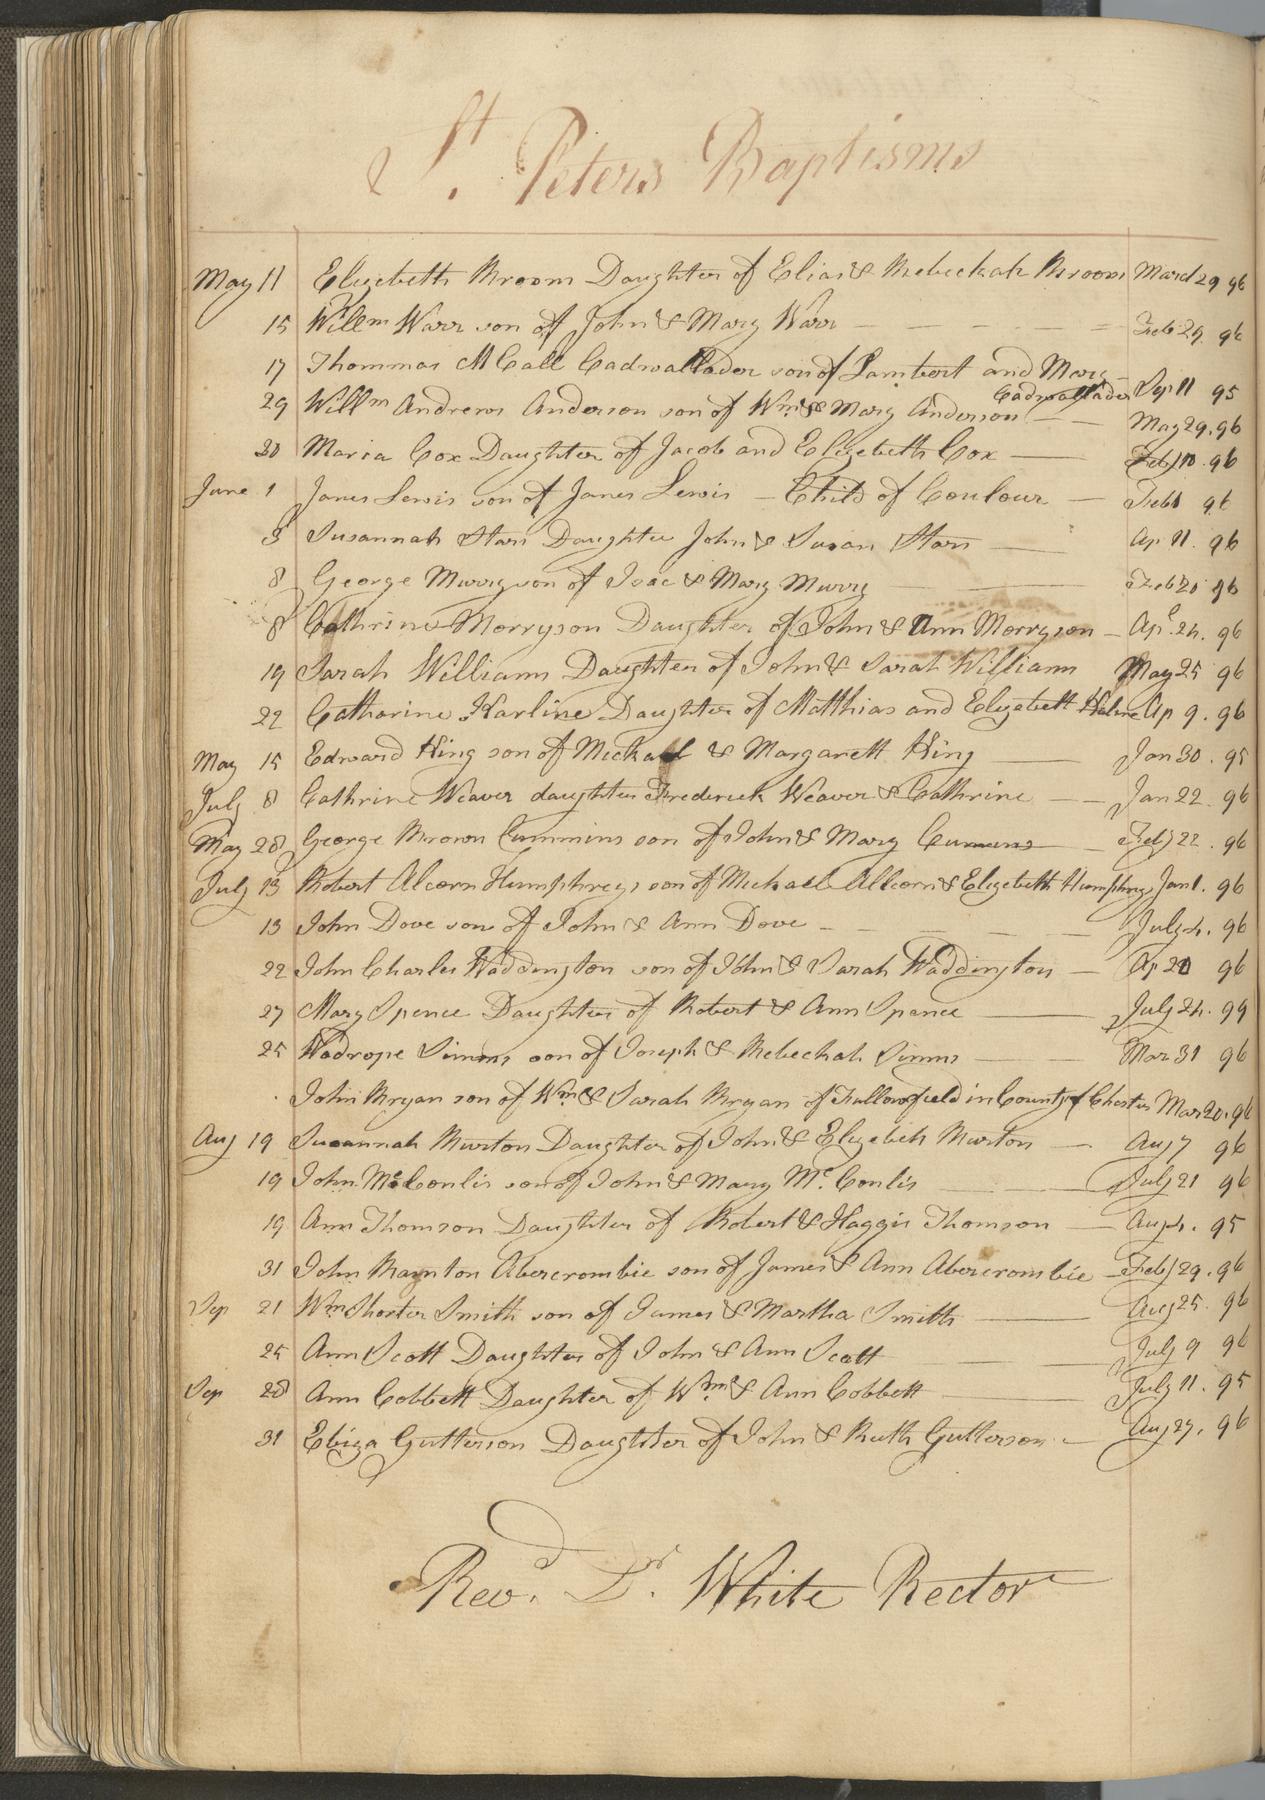 St. Peters Baptisms
May 11 Elizebeth Broom Daughter of Elias & Rebeckah Broom March 29 96
15 Willm Warr son of John & Mary Warr Feb 29 96
17 Thommas McCall Cadwallader son of Lambert and Mary
Cadwallader Sep 11 95
29 Willm Andrews Anderson son of Wm & Mary Anderson May 29. 96
30 Maria Cox Daughter of Jacob and Elizebeth Cox Feb 10. 96
June 1 James Lewis son of James Lewis - Child of Coulour Feb 96
3 Susannah Starr Daughter John & Susan Starr Ap 11. 96
8 George Murry son of Isac & Mary Murry Feb 20 96
8 Cathrine Morryson Daughter of John & Ann Morryson Apl. 24. 96
19 Sarah Williams Daughter of John & Sarah Williams May 25 96
22 Catharine Harline Daughter of Matthias and Elizebeth Ap 9. 96
May 15 Edward King son of Mickael & Margarett King Jan 30. 95
July 8 Cathrine Weaver daughter Frederick Weaver & Cathrine Jan 22. 96
May 28 George Brown Cummins son of John & Mary Cummins Feb 22. 96
July 13 Robert Alcorn Humphreys son of Mickael Allcorn & Elizebeth Humphreys Jan 1. 96
13 John Dove son of John & Ann Dove July 4. 96
22 John Charles Waddington son of John & Sarah Waddington Ap 20 96
27 Mary Spence Daughter of Robert & Ann Spence July 24. 99
25 Wadrope Simms son of Joseph & Rebeckah Simms Mar 31 96
John Bryan son of Wm & Sarah Bryan of Fullowfield in County of Chester Mar 20. 96
Aug 19 Susannah Burton Daughter of John & Elizebeth Burton Aug 7 96
19 John McConlis son of John & Mary Mc. Conlis July 21 96
19 Ann Thomson Daughter of Robert & Haggis Thomson Aug 4. 95
31 John Baynton Abercrombie son of James & Ann Abercrombie Feb 29. 96
Sep 21 Wm Shorter Smith son of James & Martha Smith Aug 25. 96
25 Ann Scott Daughter of John & Ann Scott July 9 96
Sep 28 Ann Cobbett Daughter of Wm & Ann Cobbett July 11. 95
31 Eliza Gutterson Daughter of John & Ruth Gutterson Aug 27. 96
Revd. Dr. White Rector